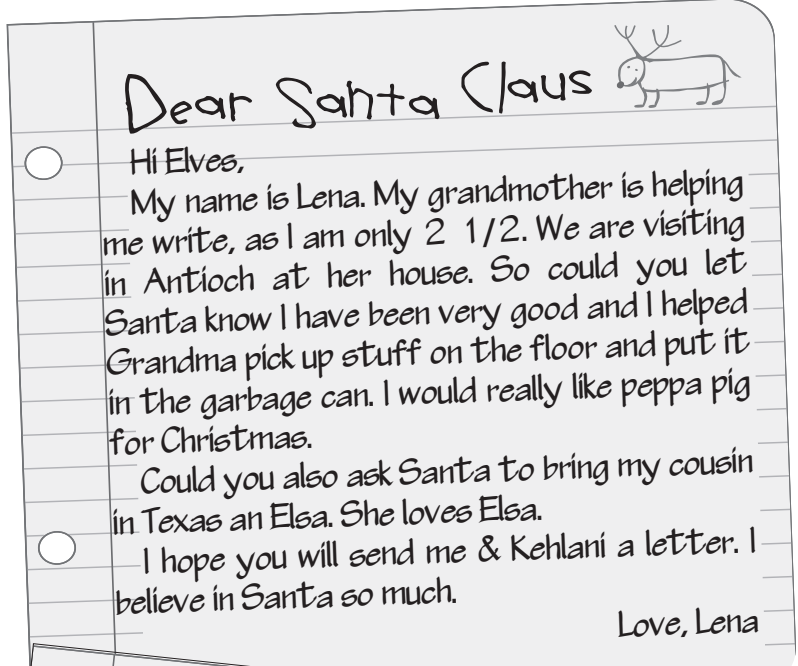 Dear Santa Claus
Hi Elves,
My name is Lena. My grandmother is helping
me write, as I am only 2 1/2. We are visiting
in Antioch at her house. So could you let
Santa know I have been very good and I helped
Grandma pick up stuff on the floor and put it
in the garbage can. I would really like peppa pig
for Christmas.
Could you also ask Santa to bring my cousin
in Texas an Elsa. She loves Elsa.
I hope you will send me & Kehlani a letter. I
believe in Santa so much.
Love, Lena